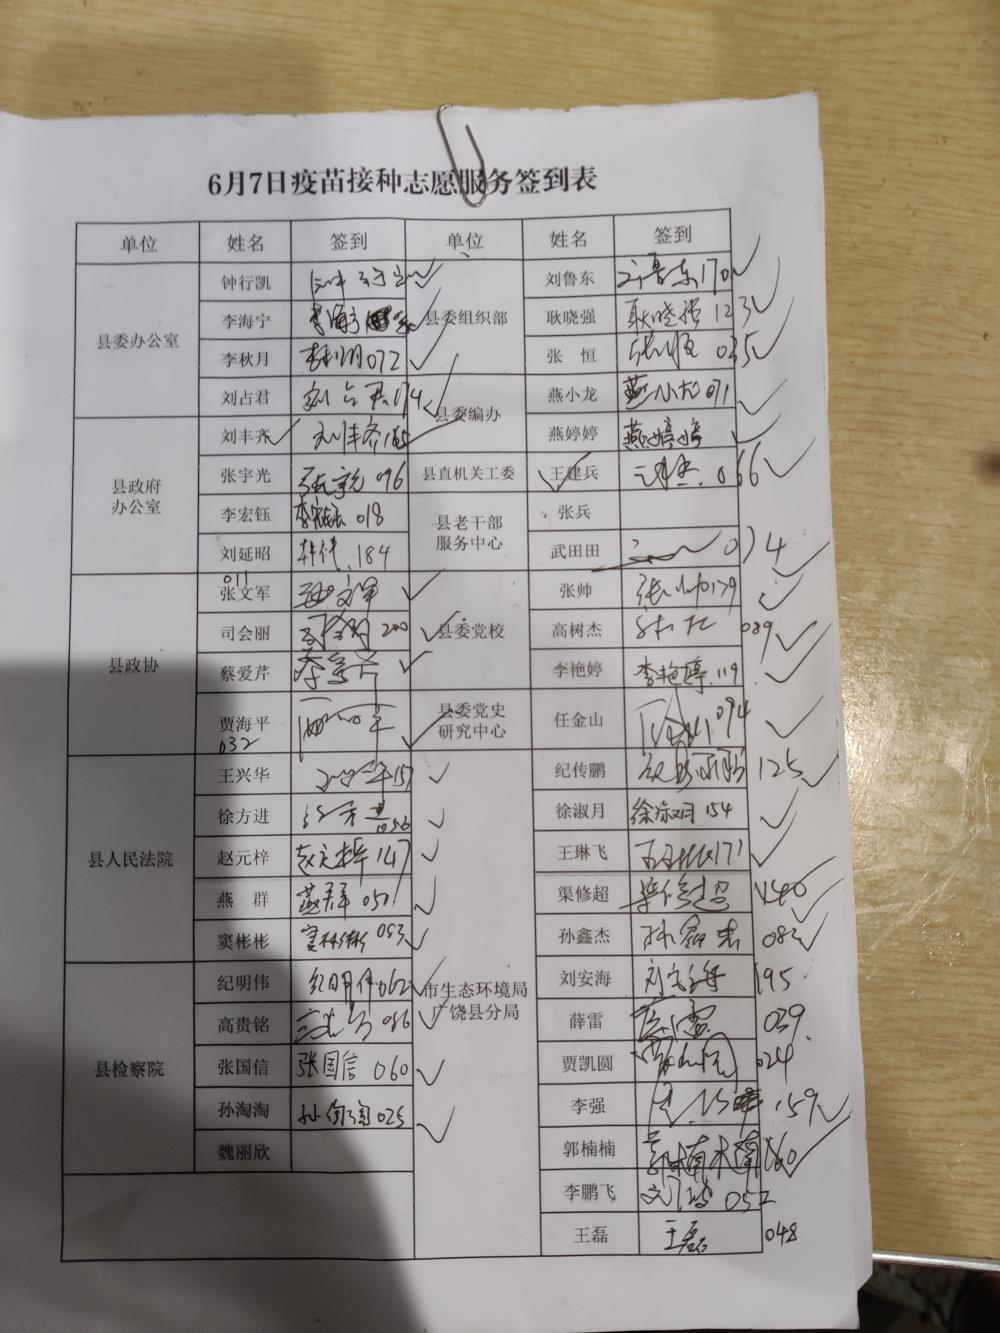 6月7日疫苗接种志愿服务签到表
单位 姓名 签到 单位 姓名 签到
县委办公室 钟行凯 县委组织部 刘鲁东 刘鲁东170
李海宁 李海宁 耿晓强 耿晓强 123
李秋月 李秋月072 张 恒 张恒 035
刘占君 刘占君074 县委编办 燕小龙 燕小龙071
县政府办公室 刘丰齐 刘丰齐165 燕婷婷 燕婷婷
张宇光 张宇光 096 县直机关工委 王建兵 066
李宏钰 李宏钰 018 县老干部服务中心 张兵
刘延昭 184 武田田 074
县政协 张文军 011 县委党校 张帅 张帅179
司会丽 司会丽 200 高树杰 089
蔡爱芹 蔡爱芹 李艳婷 李艳婷.119
贾海平 032 县委党史研究中心 任金山 任金山094
县人民法院 王兴华 157 市生态环境局广饶县分局 纪传鹏 125
徐方进 徐方进056 徐淑月 徐淑月 154
赵元梓 赵元梓147 王琳飞 171
燕 群 燕群 050 渠修超 渠修超 140
窦彬彬 窦彬彬 053 孙鑫杰 孙鑫杰 083
县检察院 纪明伟 纪明伟062 刘安海 刘安海 195
高贵铭 086 薛雷 薛雷 039
张国信 张国信 060 贾凯圆 024
孙淘淘 孙淘淘025 李强 159
魏丽欣 郭楠楠 160
李鹏飞 052
王磊 王磊 048